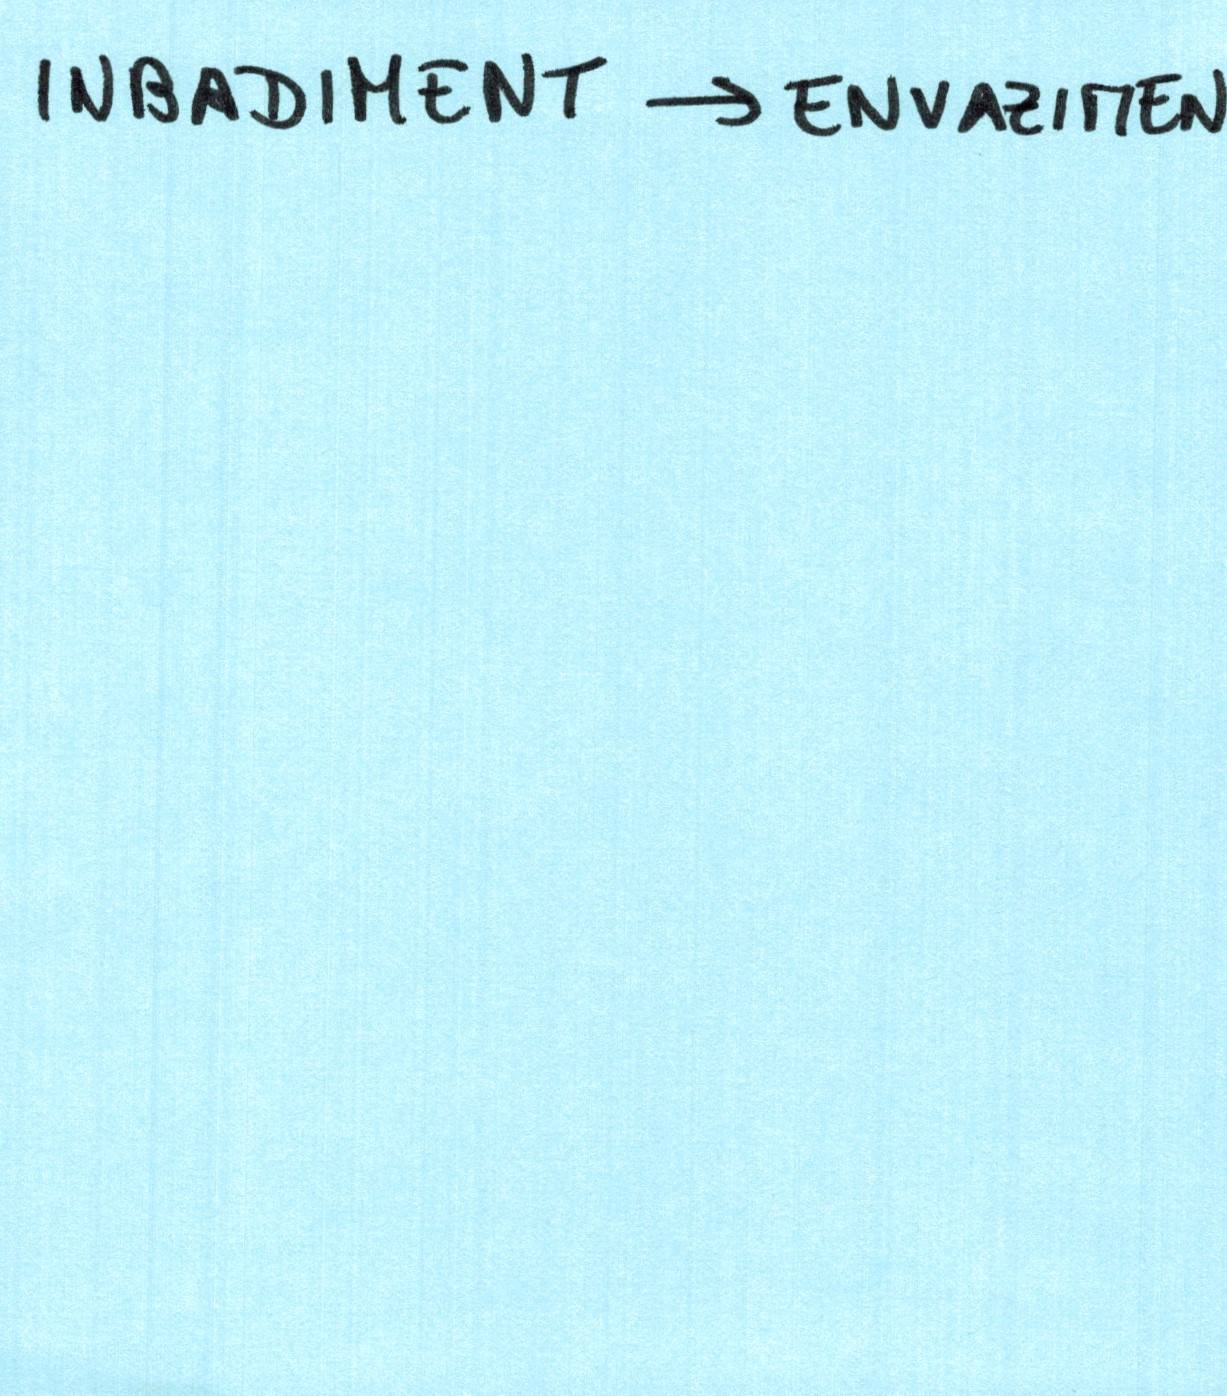 INBADIMENT → ENVAZIMEN